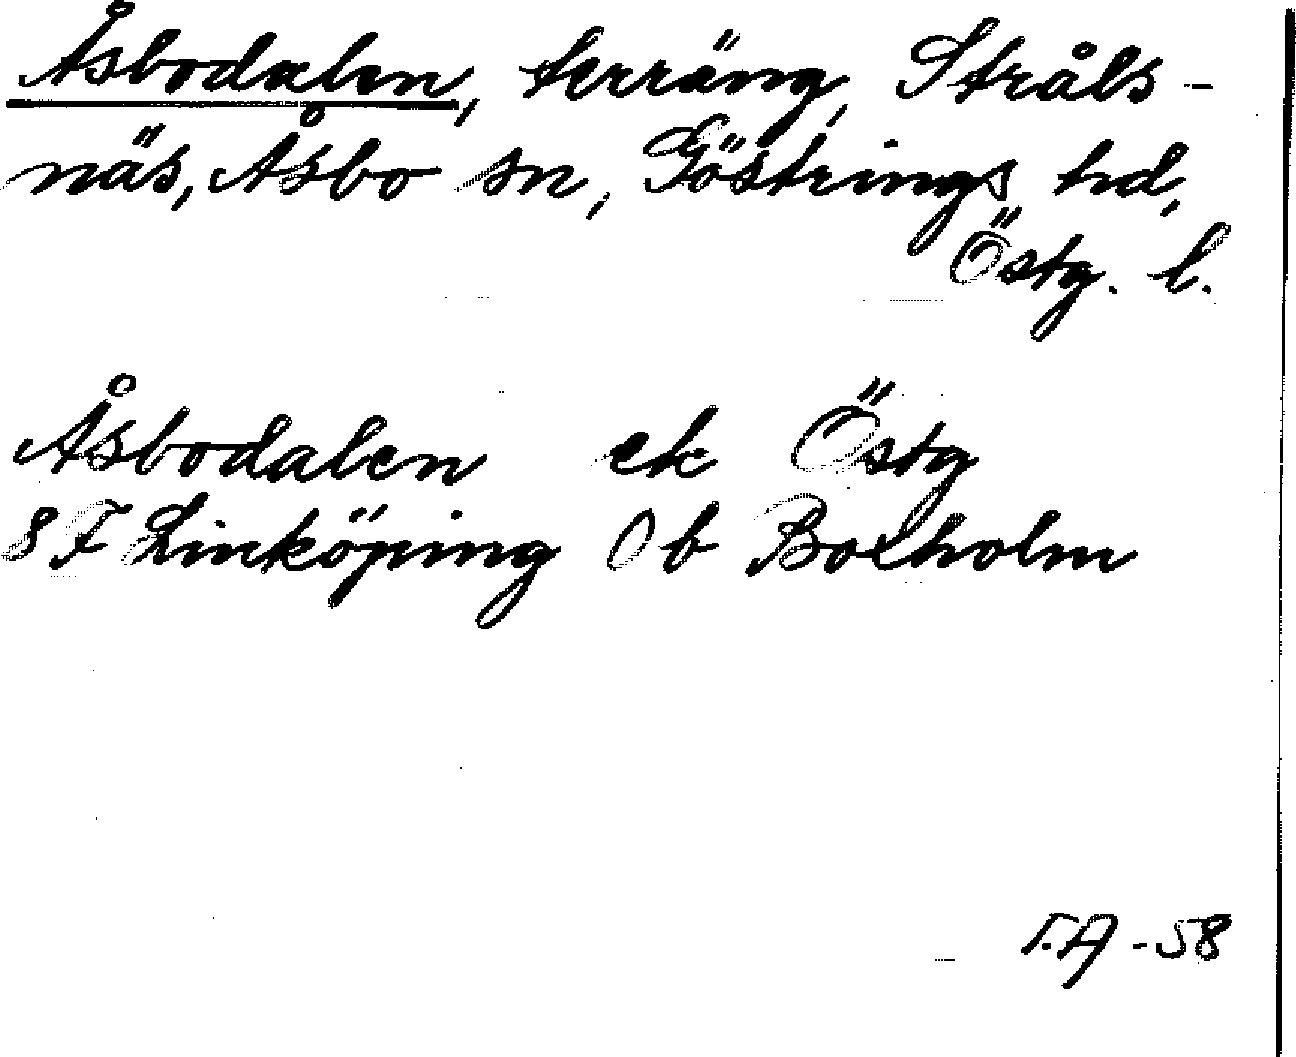 Åsbodalen, terräng, Stråls-
näs, Åsbo sn, Göstrings hd,
Östg. l.
Åsbodalen ek Östg
8 F Linköping 0 b Boxholm
F.A -58